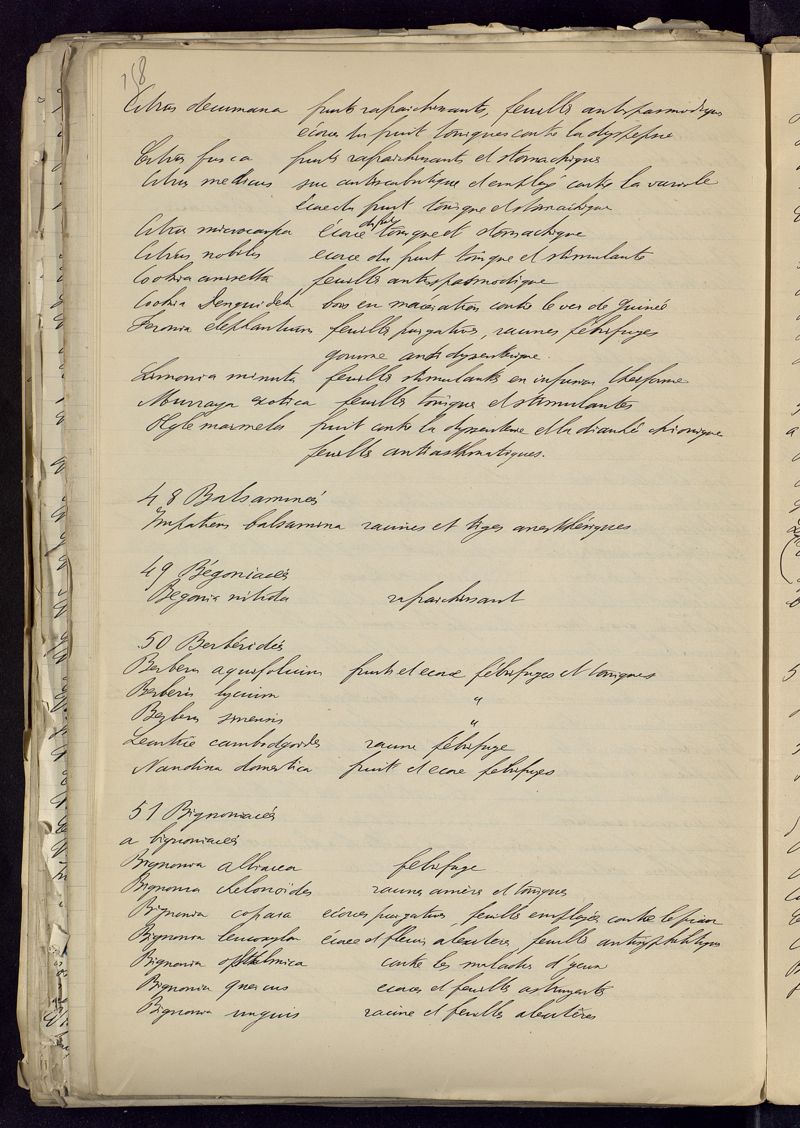 158
Citrus decumana fruits rafraichissants, feuilles antispasmodiques
écorces du fruit toniques contre la dyspepsie
Citrus fusca fruits rafraichissants et stomachiques
Citrus medicus suc antiscorbutique et employé contre la variole
Ecorce du fruit tonique et stomachique
Citrus microcarpa écorce du fruit tonique et stomachique
Citrus nobilis ecorce du fruit tonique et stimulante
Cookia anisetta feuilles antispasmodique
Cookia bois en macération contre le ver de Guinée
Feronia elephantum feuilles purgatives, racines fébrifuges
gomme antidysenterique.
Limonia minuta feuilles stimulantes en infusion theiforme
Murraya exotica feuilles toniques et stimulantes
Ægle marmelos fruit contre la dysenterie et la diarrhée chronique
feuilles antiasthmatiques.
48 Balsaminés
Impatiens balsamina racines et tiges
49 Bégoniacés
Begonia nitida rafraichissant
50 Berbéridés
Berberis aquifolium fruits et ecorce fébrifuges et toniques
Berberis lycium "
Berberis sinensis "
Leontice racine fébrifuge
Nandina domestica fruit et ecorce febrifuges
51 Bignoniacés
a bignoniacés
Bignonia febrifuge
Bignonia chelonoides racines amères et toniques
Bignonia copaia écorces purgatives, feuilles employées contre le pian
Bignonia leucoxylon écorce et fleurs alexiteres, feuilles antisyphilitiques
Bignonia ophtalmica contre les maladies d'yeux
Bignonia quercus ecorces et feuilles astringentes
Bignonia unguis racine et feuilles alexitères